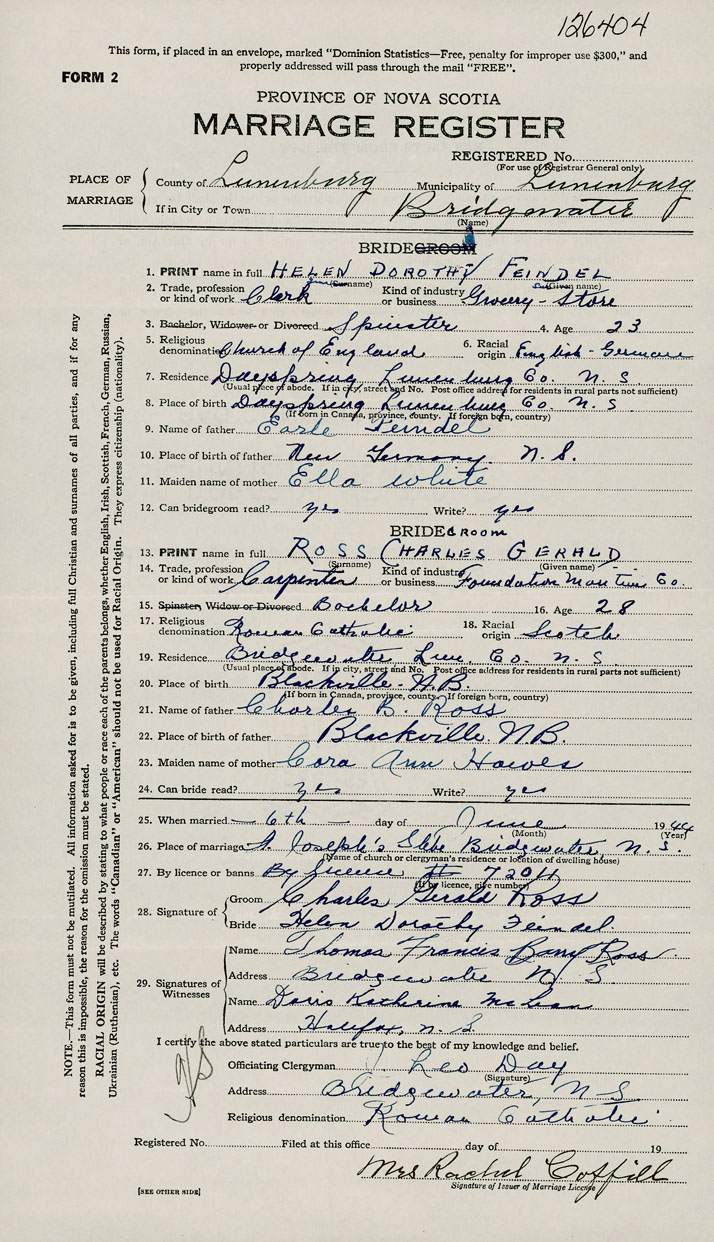 126404
This form, if placed in an envelope, marked "Dominion Statistics—Free, penalty for improper use $300," and
properly addressed will pass through the mail "FREE".
FORM 2
PROVINCE OF NOVA SCOTIA
MARRIAGE REGISTER
REGISTERED No.
(For use of Registrar General only)
PLACE OF MARRIAGE
County of Lunenburg Municipality of Lunenburg
If in City or Town Bridgewater
(Name)
BRIDEGROOM
1. PRINT name in full HELEN DOROTHY FEINDEL
(Surname) (Given name)
2. Trade, profession or kind of work Clerk Kind of industry or business Grocery-Store
3. Bachelor, Widower or Divorced Spinster 4. Age 23
5. Religious denomination Church of England 6. Racial origin English-German
7. Residence Dayspring Lunenburg Co. N. S.
(Usual place of abode. If in city, street and No. Post office address for residents in rural parts not sufficient)
8. Place of birth Dayspring Lunenburg Co. N. S.
(If born in Canada, province, county. If foreign born, country)
9. Name of father Earle Feindel
10. Place of birth of father New Germany. N. S.
11. Maiden name of mother Ella White
12. Can bridegroom read? yes Write? yes
BRIDEGROOM
13. PRINT name in full ROSS CHARLES GERALD
(Surname) (Given name)
14. Trade, profession or kind of work Carpenter Kind of industry or business Foundation Maritime Co.
15. Spinster, Widow or Divorced Bachelor 16. Age 28
17. Religious denomination Roman Catholic 18. Racial origin Scotch
19. Residence Bridgewater Lun. Co. N. S
(Usual place of abode. If in city, street and No. Post office address for residents in rural parts not sufficient)
20. Place of birth Blackville. N.B.
(If born in Canada, province, county. If foreign born, country)
21. Name of father Charles B. Ross
22. Place of birth of father Blackville. N.B.
23. Maiden name of mother Cora Ann Howes
24. Can bride read? yes Write? yes
25. When married 6th day of June 1944
(Month) (Year)
26. Place of marriage St. Joseph's Bridgewater, N. S.
(Name of church or clergyman's residence or location of dwelling house)
27. By licence or banns By License # 72011
(If by licence, give number)
28. Signature of
Groom Charles Gerald Ross
Bride Helen Dorothy Feindel.
29. Signatures of Witnesses
Name Thomas Francis Barry Ross
Address Bridgewater N. S.
Name Doris Katherine McLean
Address Halifax, N. S.
I certify the above stated particulars are true to the best of my knowledge and belief.
Officiating Clergyman Leo Day
(Signature)
Address Bridgewater, N. S.
Religious denomination Roman Catholic
Registered No. Filed at this office day of 19
Mrs Rachel Coffill
Signature of Issuer of Marriage License
[SEE OTHER SIDE]
NOTE.—This form must not be mutilated. All information asked for is to be given, including full Christian and surnames of all parties, and if for any
reason this is impossible, the reason for the omission must be stated.
RACIAL ORIGIN will be described by stating to what people or race each of the parents belongs, whether English, Irish, Scottish, French, German, Russian,
Ukrainian (Ruthenian), etc. The words "Canadian" or "American" should not be used for Racial Origin. They express citizenship (nationality).